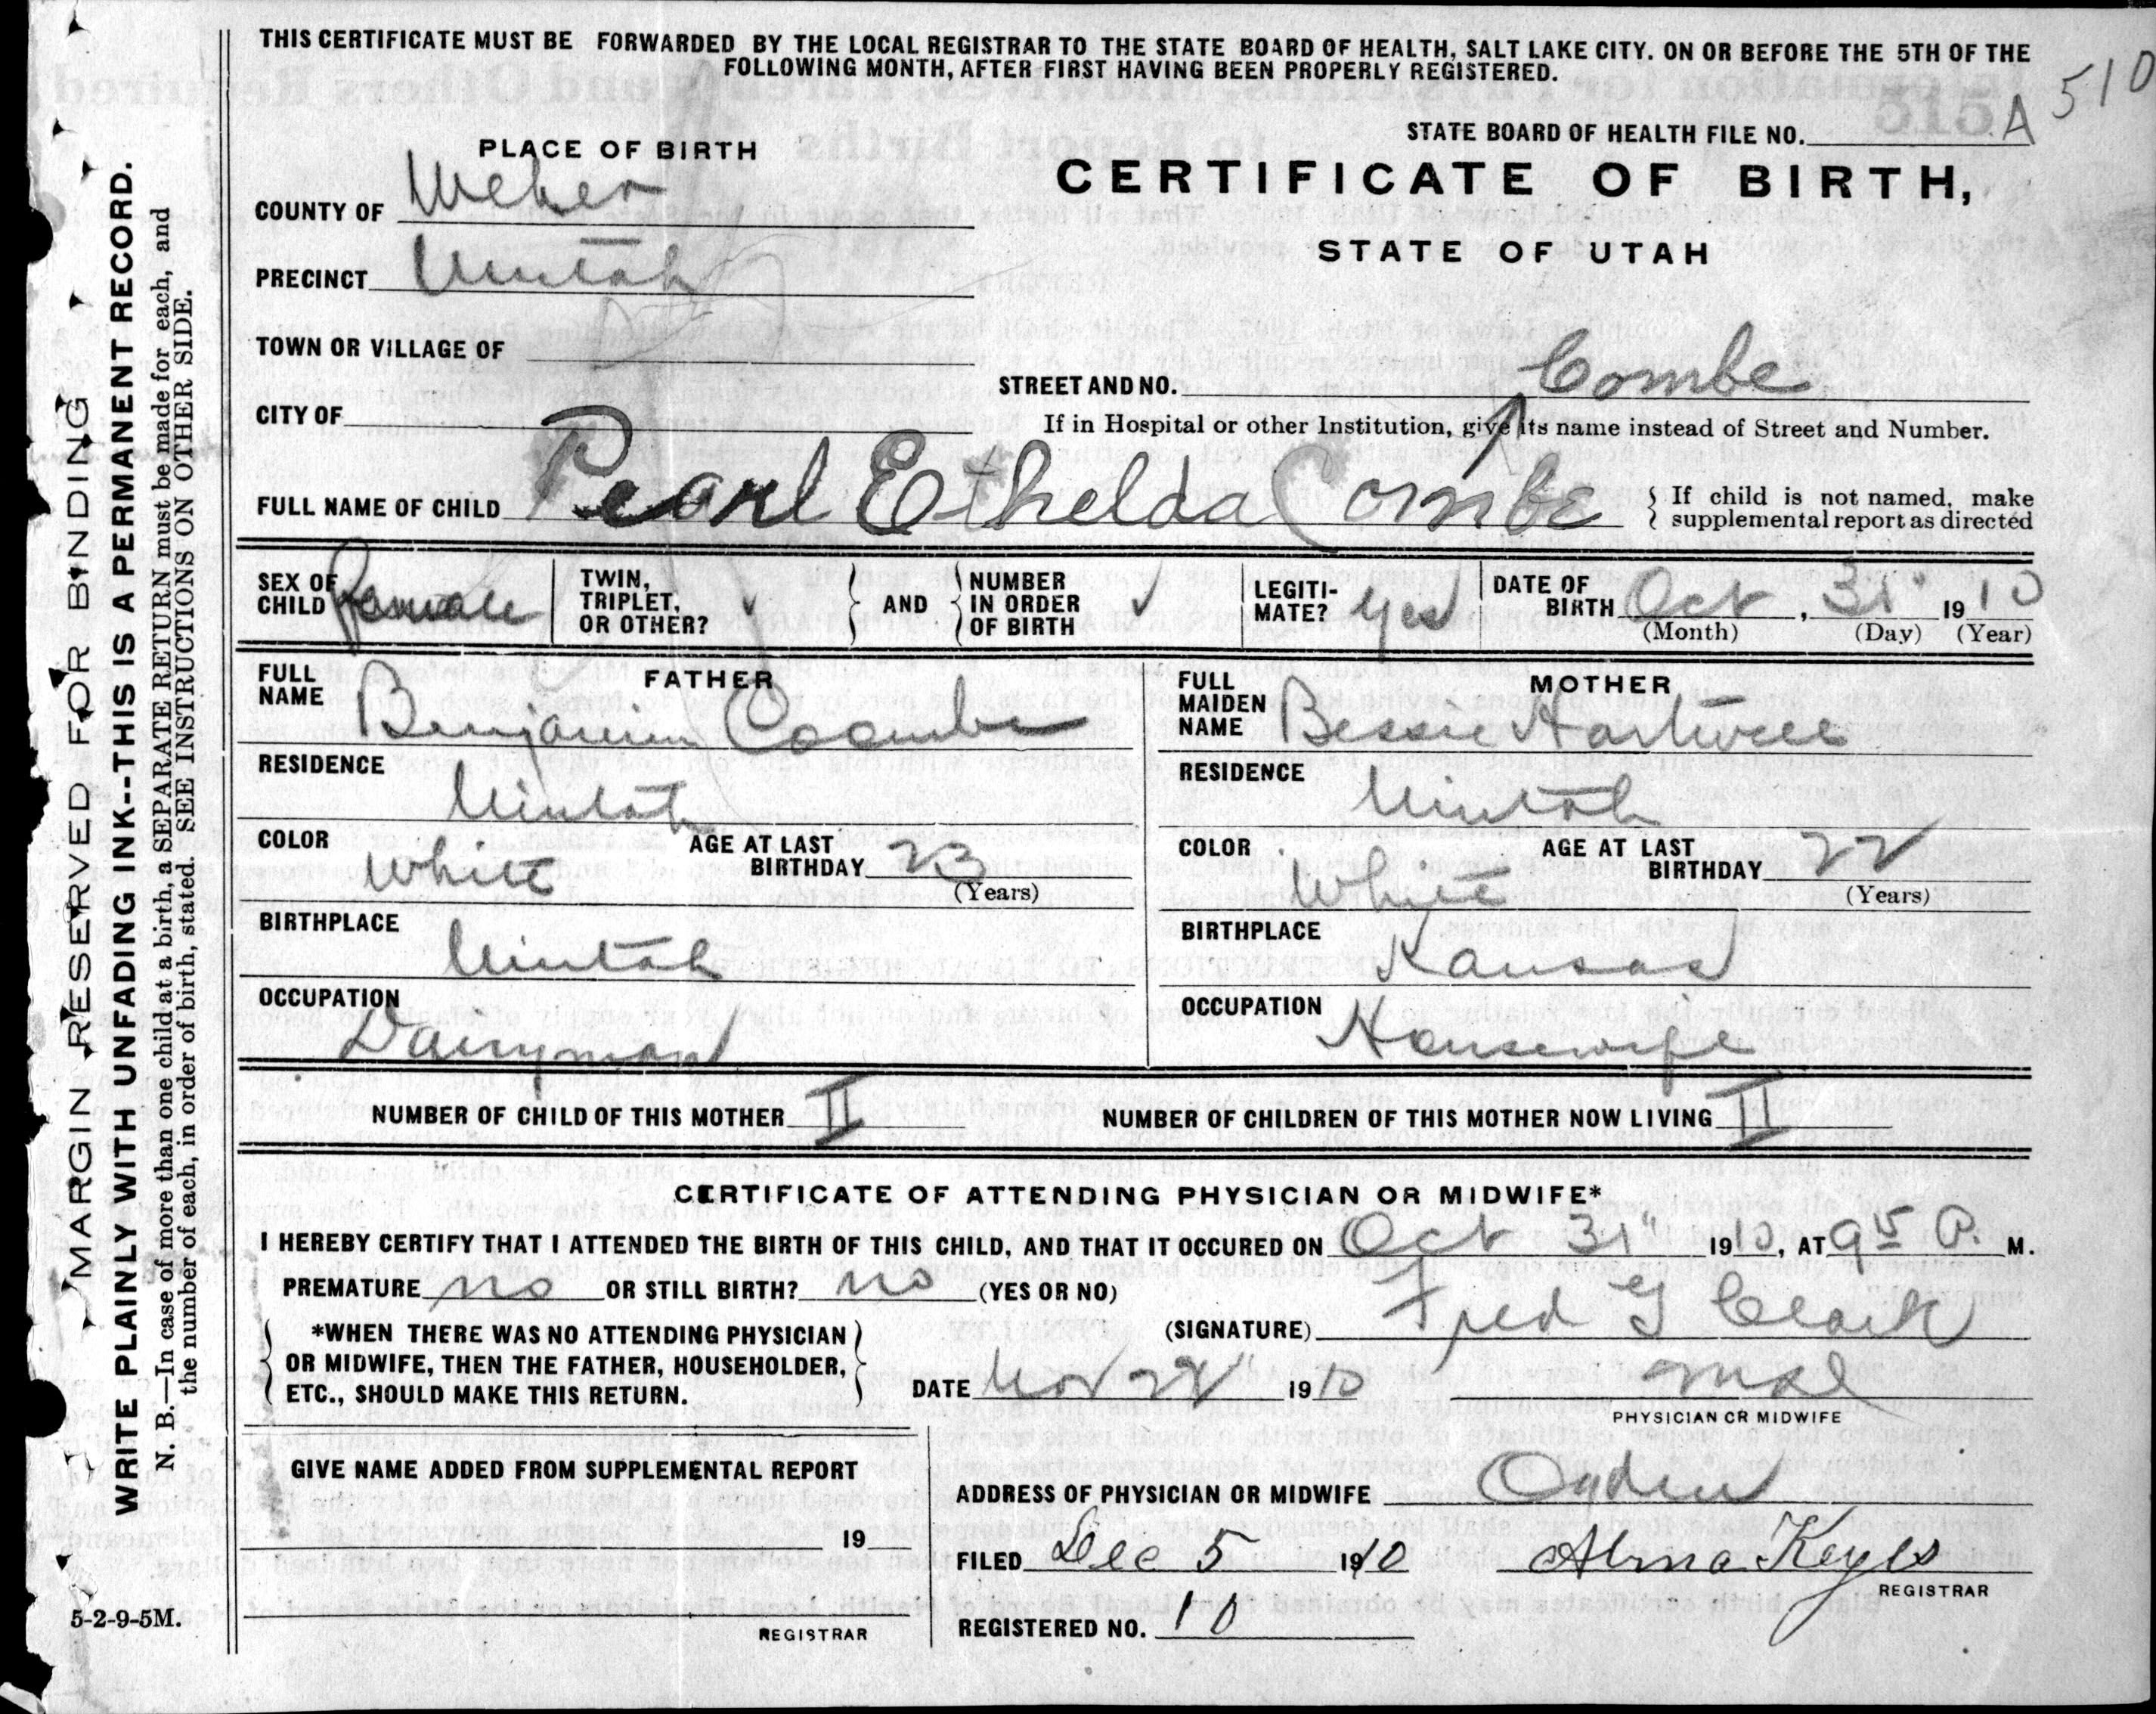 THIS CERTIFICATE MUST BE FORWARDED BY THE LOCAL REGISTRAR TO THE STATE BOARD OF HEALTH, SALT LAKE CITY. ON OR BEFORE THE 5TH OF THE
FOLLOWING MONTH, AFTER FIRST HAVING BEEN PROPERLY REGISTERED.
510
STATE BOARD OF HEALTH FILE NO. A
PLACE OF BIRTH
CERTIFICATE OF BIRTH,
STATE OF UTAH
COUNTY OF Weber
PRECINCT Uintah
TOWN OR VILLAGE OF
STREET AND NO. Combe
CITY OF
If in Hospital or other Institution, give its name instead of Street and Number.
FULL NAME OF CHILD Pearl Ethelda Combe
{ If child is not named, make
supplemental report as directed
SEX OF CHILD Female
TWIN, TRIPLET, OR OTHER? ✓ } AND { NUMBER IN ORDER OF BIRTH ✓
LEGITI-MATE? Yes
DATE OF BIRTH Oct, 31" 1910
(Month) (Day) (Year)
FATHER
FULL NAME Benjamin Coombe
RESIDENCE Uintah
COLOR White AGE AT LAST BIRTHDAY 23
(Years)
BIRTHPLACE Uintah
OCCUPATION Dairyman
MOTHER
FULL MAIDEN NAME Bessie Hartwell
RESIDENCE Uintah
COLOR White AGE AT LAST BIRTHDAY 22
(Years)
BIRTHPLACE Kansas
OCCUPATION Housewife
NUMBER OF CHILD OF THIS MOTHER II NUMBER OF CHILDREN OF THIS MOTHER NOW LIVING II
CERTIFICATE OF ATTENDING PHYSICIAN OR MIDWIFE*
I HEREBY CERTIFY THAT I ATTENDED THE BIRTH OF THIS CHILD, AND THAT IT OCCURED ON Oct 31" 1910, AT 9 15 P. M.
PREMATURE no OR STILL BIRTH? no (YES OR NO)
{ *WHEN THERE WAS NO ATTENDING PHYSICIAN
OR MIDWIFE, THEN THE FATHER, HOUSEHOLDER,
ETC., SHOULD MAKE THIS RETURN. }
(SIGNATURE) Fred G Clark
DATE Nov 28" 1910
PHYSICIAN OR MIDWIFE
GIVE NAME ADDED FROM SUPPLEMENTAL REPORT
19
REGISTRAR
ADDRESS OF PHYSICIAN OR MIDWIFE Ogden
FILED Dec 5 1910 Alma Keyes
REGISTRAR
REGISTERED NO. 10
MARGIN RESERVED FOR BINDING
WRITE PLAINLY WITH UNFADING INK--THIS IS A PERMANENT RECORD.
N. B.—In case of more than one child at a birth, a SEPARATE RETURN must be made for each, and
the number of each, in order of birth, stated. SEE INSTRUCTIONS ON OTHER SIDE.
5-2-9-5M.